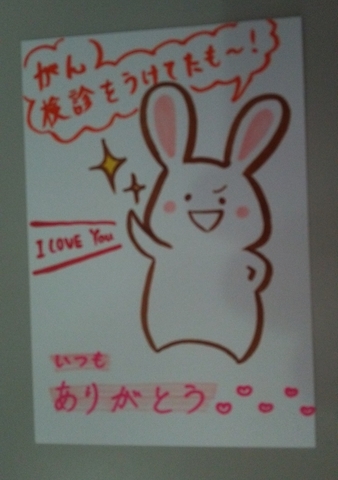 がん
検診をうけてたも～!
I LOVE You
いつも
ありがとう